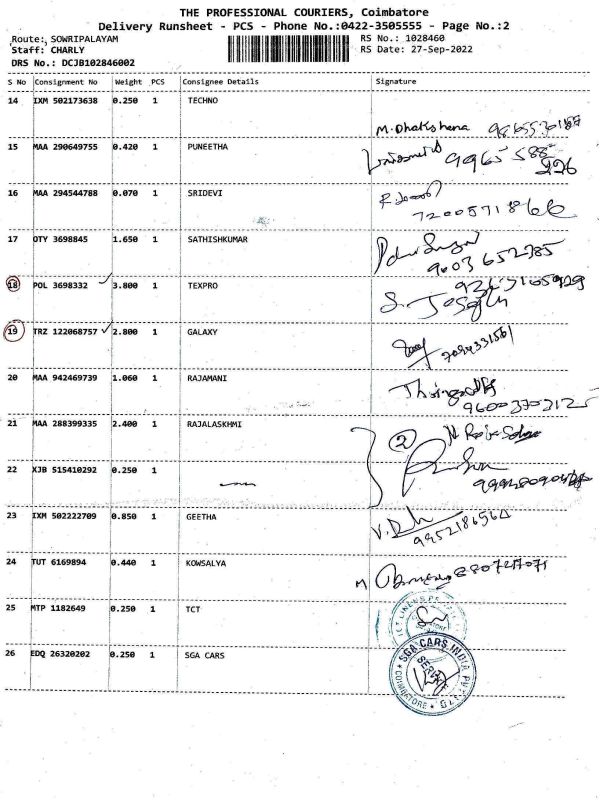 THE PROFESSIONAL COURIERS, Coimbatore
Delivery Runsheet - PCS - Phone No.:0422-3505555 - Page No.:2
Route: SOWRIPALAYAM
RS No.: 1028460
Staff: CHARLY
RS Date: 27-Sep-2022
DRS No.: DCJB102846002
S No Consignment No Weight PCS Consignee Details Signature
14 IXM 502173638 0.250 1 TECHNO
M.Dhakshana
15 MAA 290649755 0.420 1 PUNEETHA
9965 588
226
16 MAA 294544788 0.070 1 SRIDEVI
7200571866
17 OTY 3698845 1.650 1 SATHISHKUMAR
9603652785
18 POL 3698332 3.800 1 TEXPRO
19 TRZ 122068757 2.800 1 GALAXY
20 MAA 942469739 1.060 1 RAJAMANI
9600373125
21 MAA 288399335 2.400 1 RAJALASKHMI
2
22 XJB 515410292 0.250 1
23 IXM 502222709 0.850 1 GEETHA
24 TUT 6169894 0.440 1 KOWSALYA
M
25 MTP 1182649 0.250 1 TCT
26 EDQ 26320202 0.250 1 SGA CARS
SGA CARS INDIA
COIMBATORE